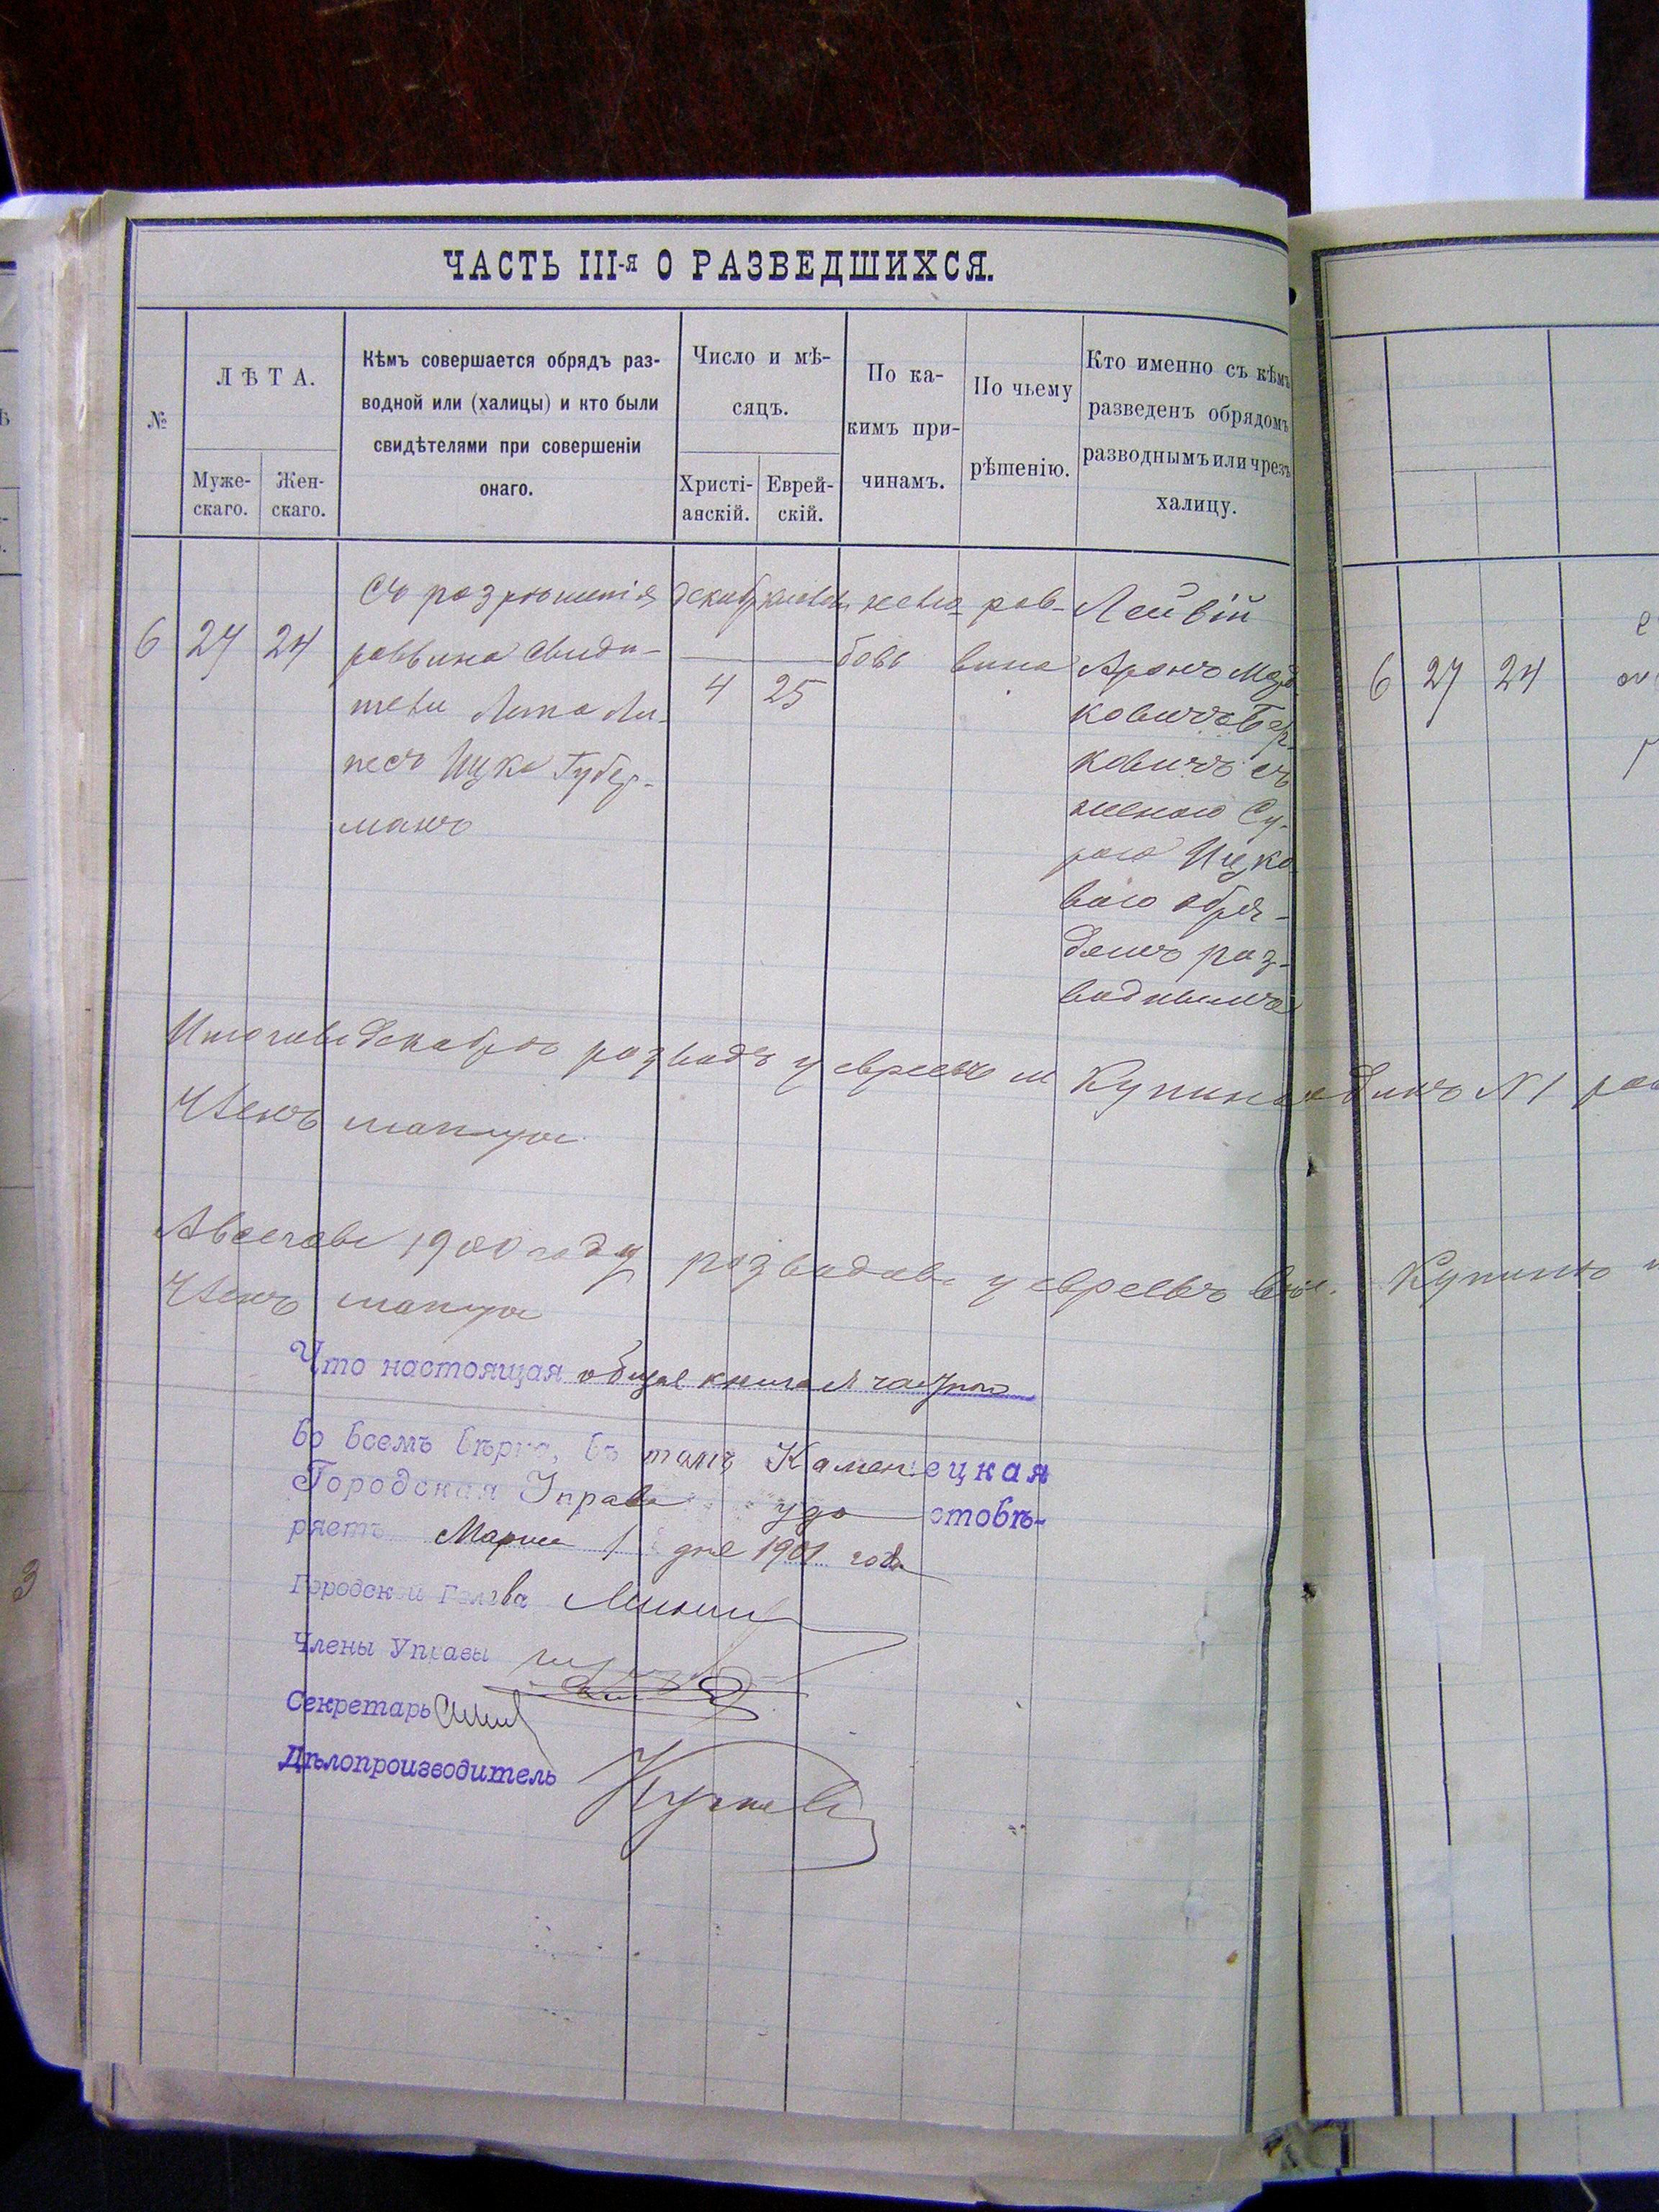 ЧАСТЬ III-я О РАЗВЕДШИХСЯ.
№
ЛѢТА.
Муже-
скаго.
Жен-
скаго.
Кѣмъ совершается обрядъ раз-
водной или (халицы) и кто были
свидѣтелями при совершеніи
онаго.
Число и мѣ-
сяцъ.
Христі-
анскій.
Еврей-
скій.
По ка-
кимъ при-
чинамъ.
По чьему
рѣшенію.
Кто именно съ кѣмъ
разведенъ обрядомъ
разводнымъ или чрезъ
халицу.
6 27 24
Съ разрѣшенія
раввина свиде-
тели Липа Ли-
песъ Ицко Губер-
манъ
4 25
нелю-
бовь
рав-
вина
Лейвій
Аронъ
ковичъ Бер-
ковичъ съ
женою Су-
рою Ицко
вою обря-
домъ раз-
воднымъ
6 27 24
Итого въ декабрѣ разводъ у евреевъ м Купинѣ одинъ N 1
Членъ
А всего въ 1900 году разводовъ у евреевъ Купинѣ
Членъ
Что настоящая общая книга
во всемъ вѣрна, въ томъ Каменецкая
Городская Управа удостовѣ-
ряетъ Марта 1 дня 1901 года
Городской Голова
Члены Управы
Секретарь
Дѣлопроизводитель
3